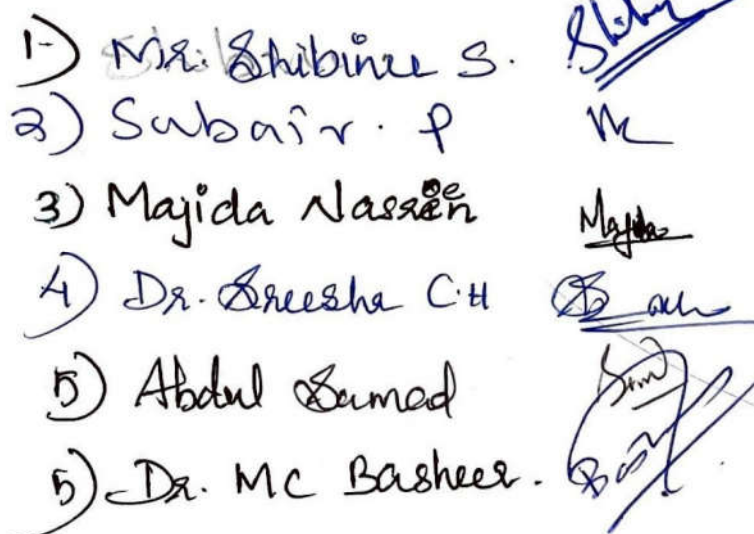 1) Mr. Shibinu S.
2) Subair. P
3) Majida Nasreen Majida
4) Dr. Sreesha C.H
5) Abdul Samad
5) Dr. MC Basheer.